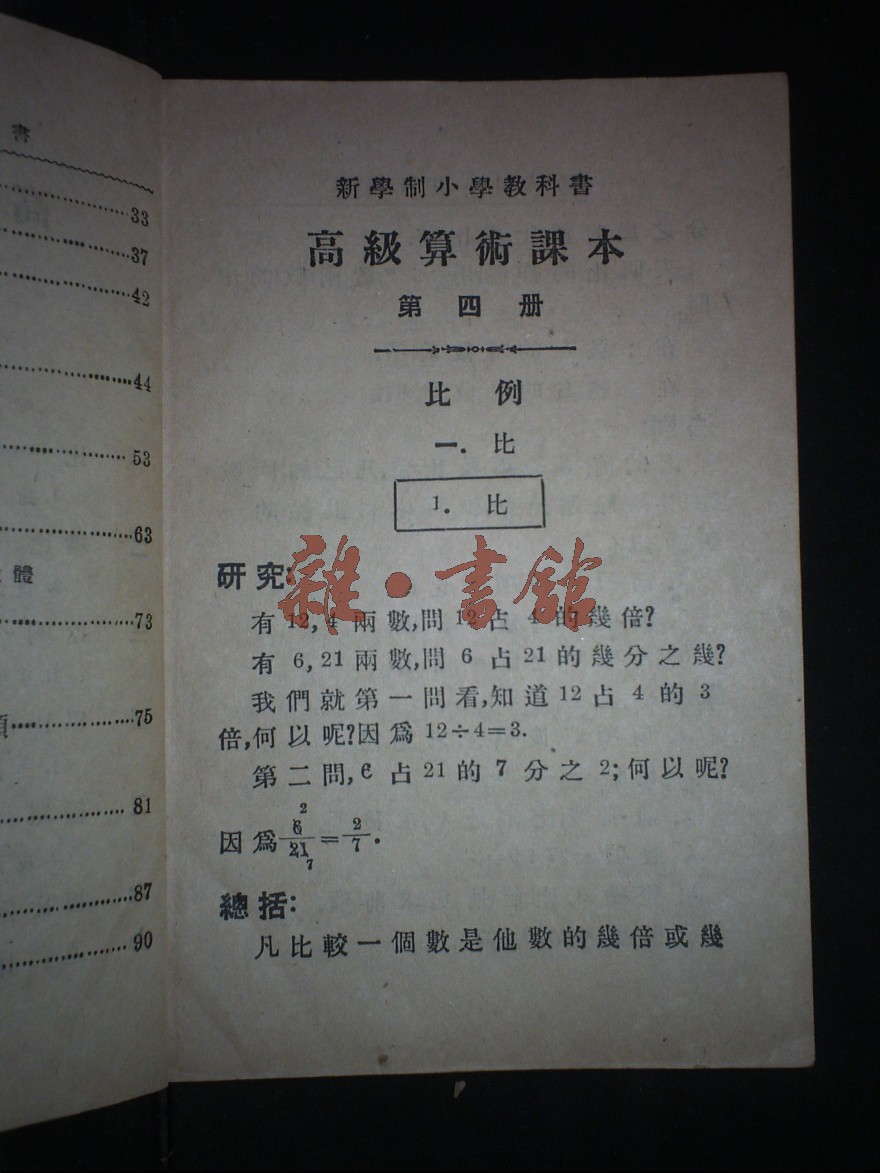 書
33
37
42
44
53
63
體
73
75
81
87
90
新學制小學教科書
高級算術課本
第四册
比例
一．比
1．比
雜·書館
研究：
有12,4兩數,問12占4的幾倍?
有6,21兩數,問6占21的幾分之幾?
我們就第一問看,知道12占4的3
倍,何以呢?因爲12÷4=3.
第二問,6占21的7分之2;何以呢?
2
因爲6/21=2/7.
7
總括：
凡比較一個數是他數的幾倍或幾